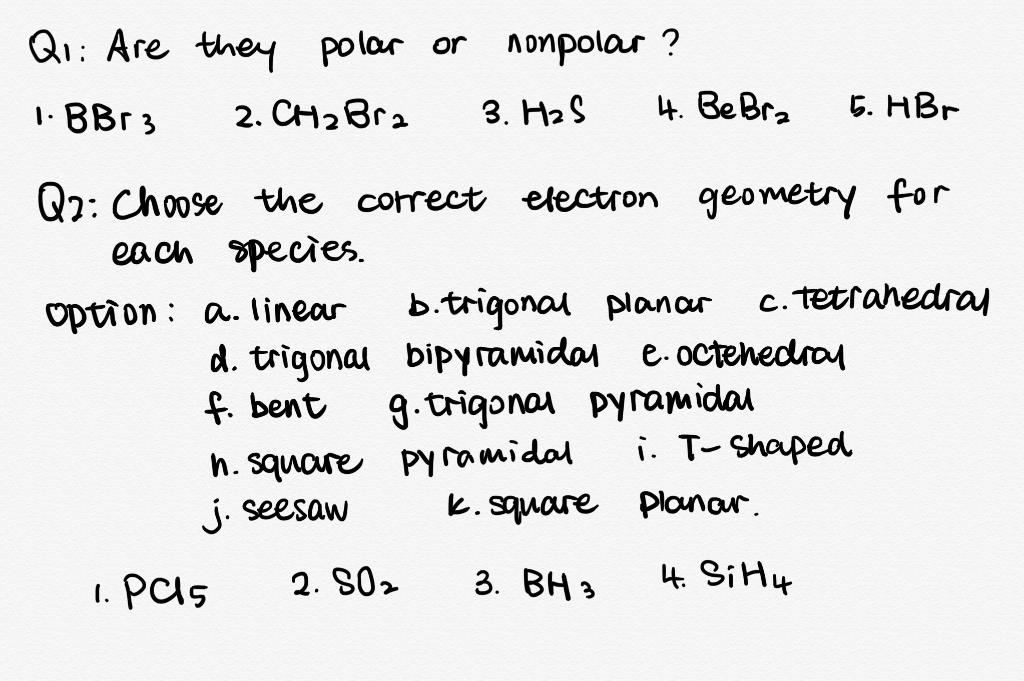 Q1: Are they polar or nonpolar?
1. BBr3 2. CH2Br2 3. H2S 4. BeBr2 5. HBr
Q2: Choose the correct electron geometry for
each species.
option: a. linear b. trigonal planar c. tetrahedral
d. trigonal bipyramidal e. octehedral
f. bent g. trigonal pyramidal
h. square pyramidal i. T-shaped
j. seesaw k. square planar.
1. PCl5 2. SO2 3. BH3 4. SiH4